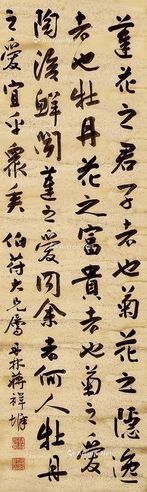 蓮花之君子者也菊花之隱逸
者也牡丹花之富貴者也菊之愛
陶後鮮聞蓮之愛同余者何人牡丹
之愛宜乎衆矣 伯苻大兄屬 丹林蔣祥墀